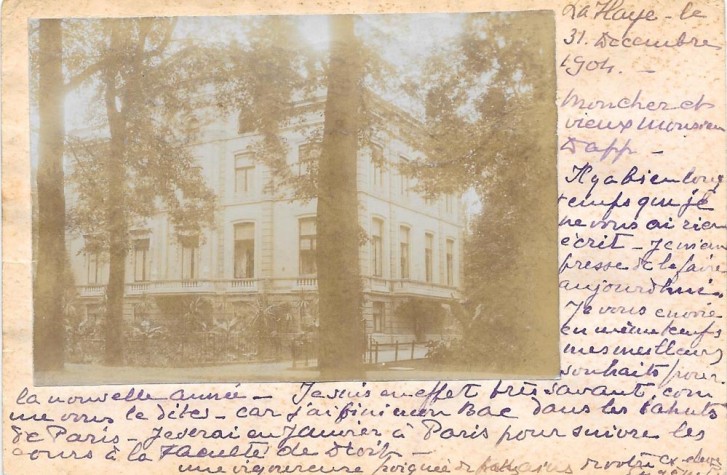 La Haye - le
31. Decembre
1904. -
Mon cher et
vieux Monsieur
Dapp -
Il y a bien long
temps que je
ne vous ai rien
écrit - Je m'em
presse de le faire
aujourd'hui.
Je vous envoie
en même temps
mes meilleurs
souhaits pour
la nouvelle année - Je suis en effet très savant, com
me vous le dites - car j'ai fini mon Bac dans les bahuts
de Paris - Je serai en Janvier à Paris pour suivre les
cours à la Faculté de Droit -
une vigoureuse poignée de de votre ex-élève